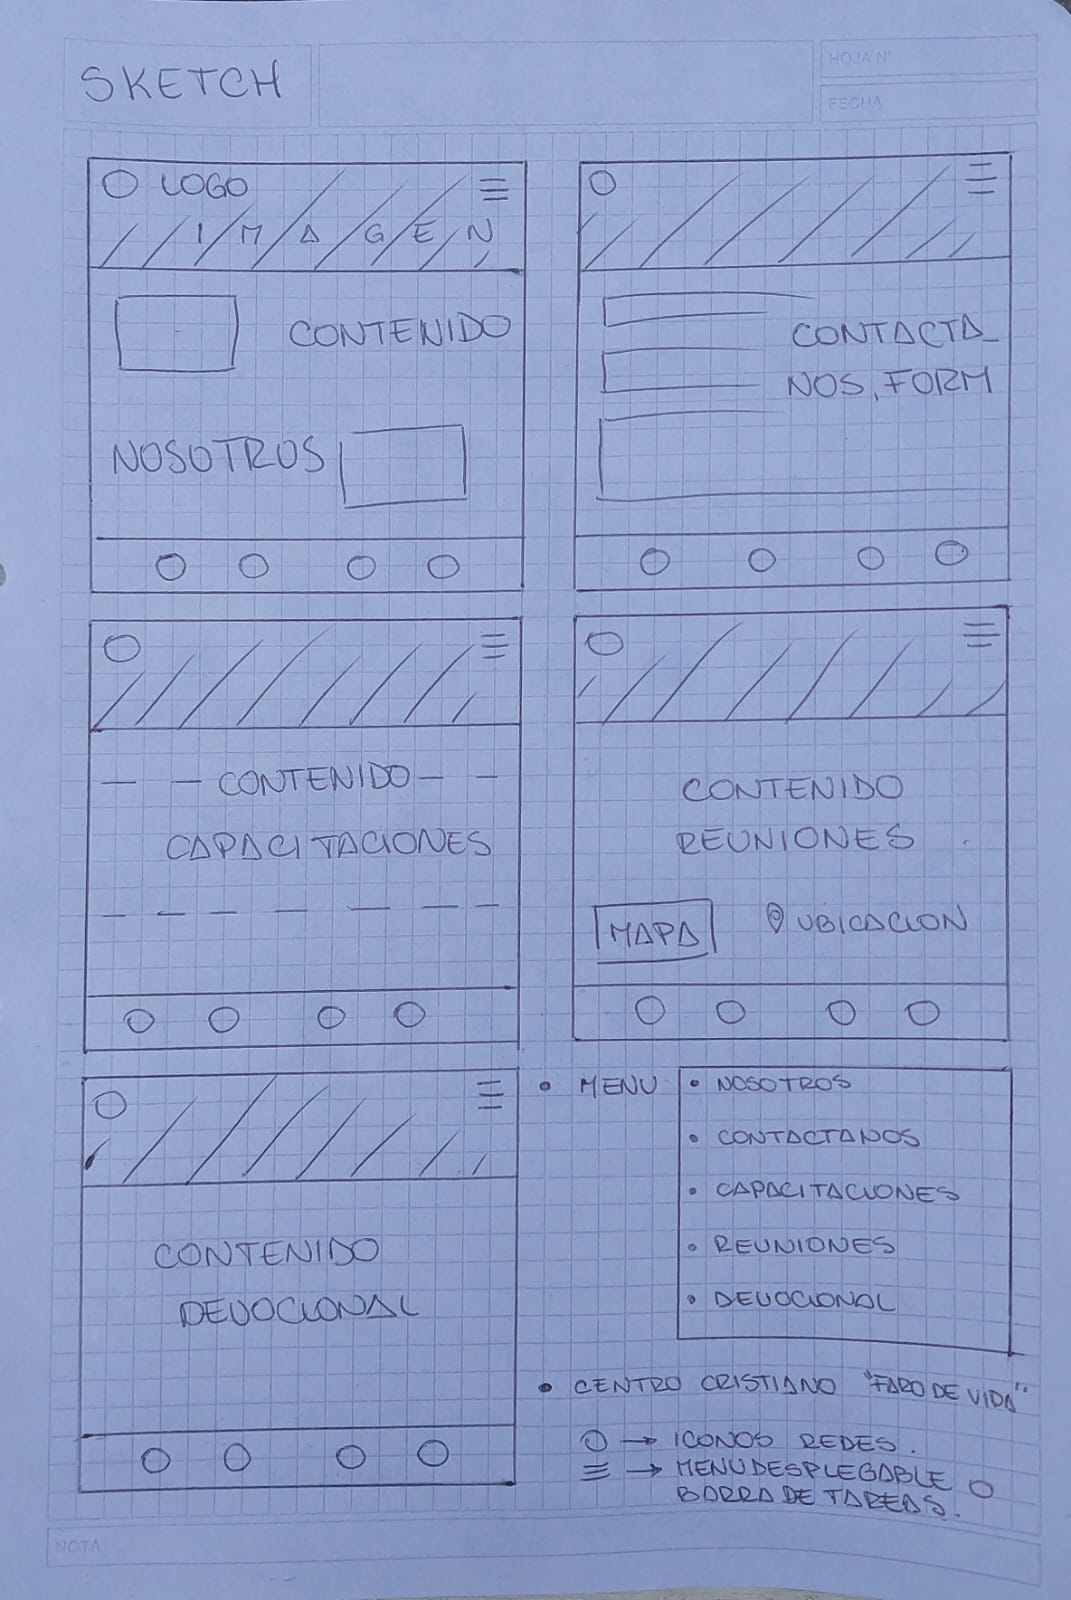 SKETCH
HOJA N°
FECHA
LOGO
IMAGEN
CONTENIDO
NOSOTROS
CONTACTA_
NOS, FORM
CONTENIDO
CAPACITACIONES
CONTENIDO
REUNIONES
MAPA
UBICACION
CONTENIDO
DEVOCIONAL
• MENU
• NOSOTROS
• CONTACTANOS
• CAPACITACIONES
• REUNIONES
• DEVOCIONAL
• CENTRO CRISTIANO "FARO DE VIDA"
○ → ICONOS REDES.
≡ → MENU DESPLEGABLE O
BARRA DE TAREAS.
NOTA